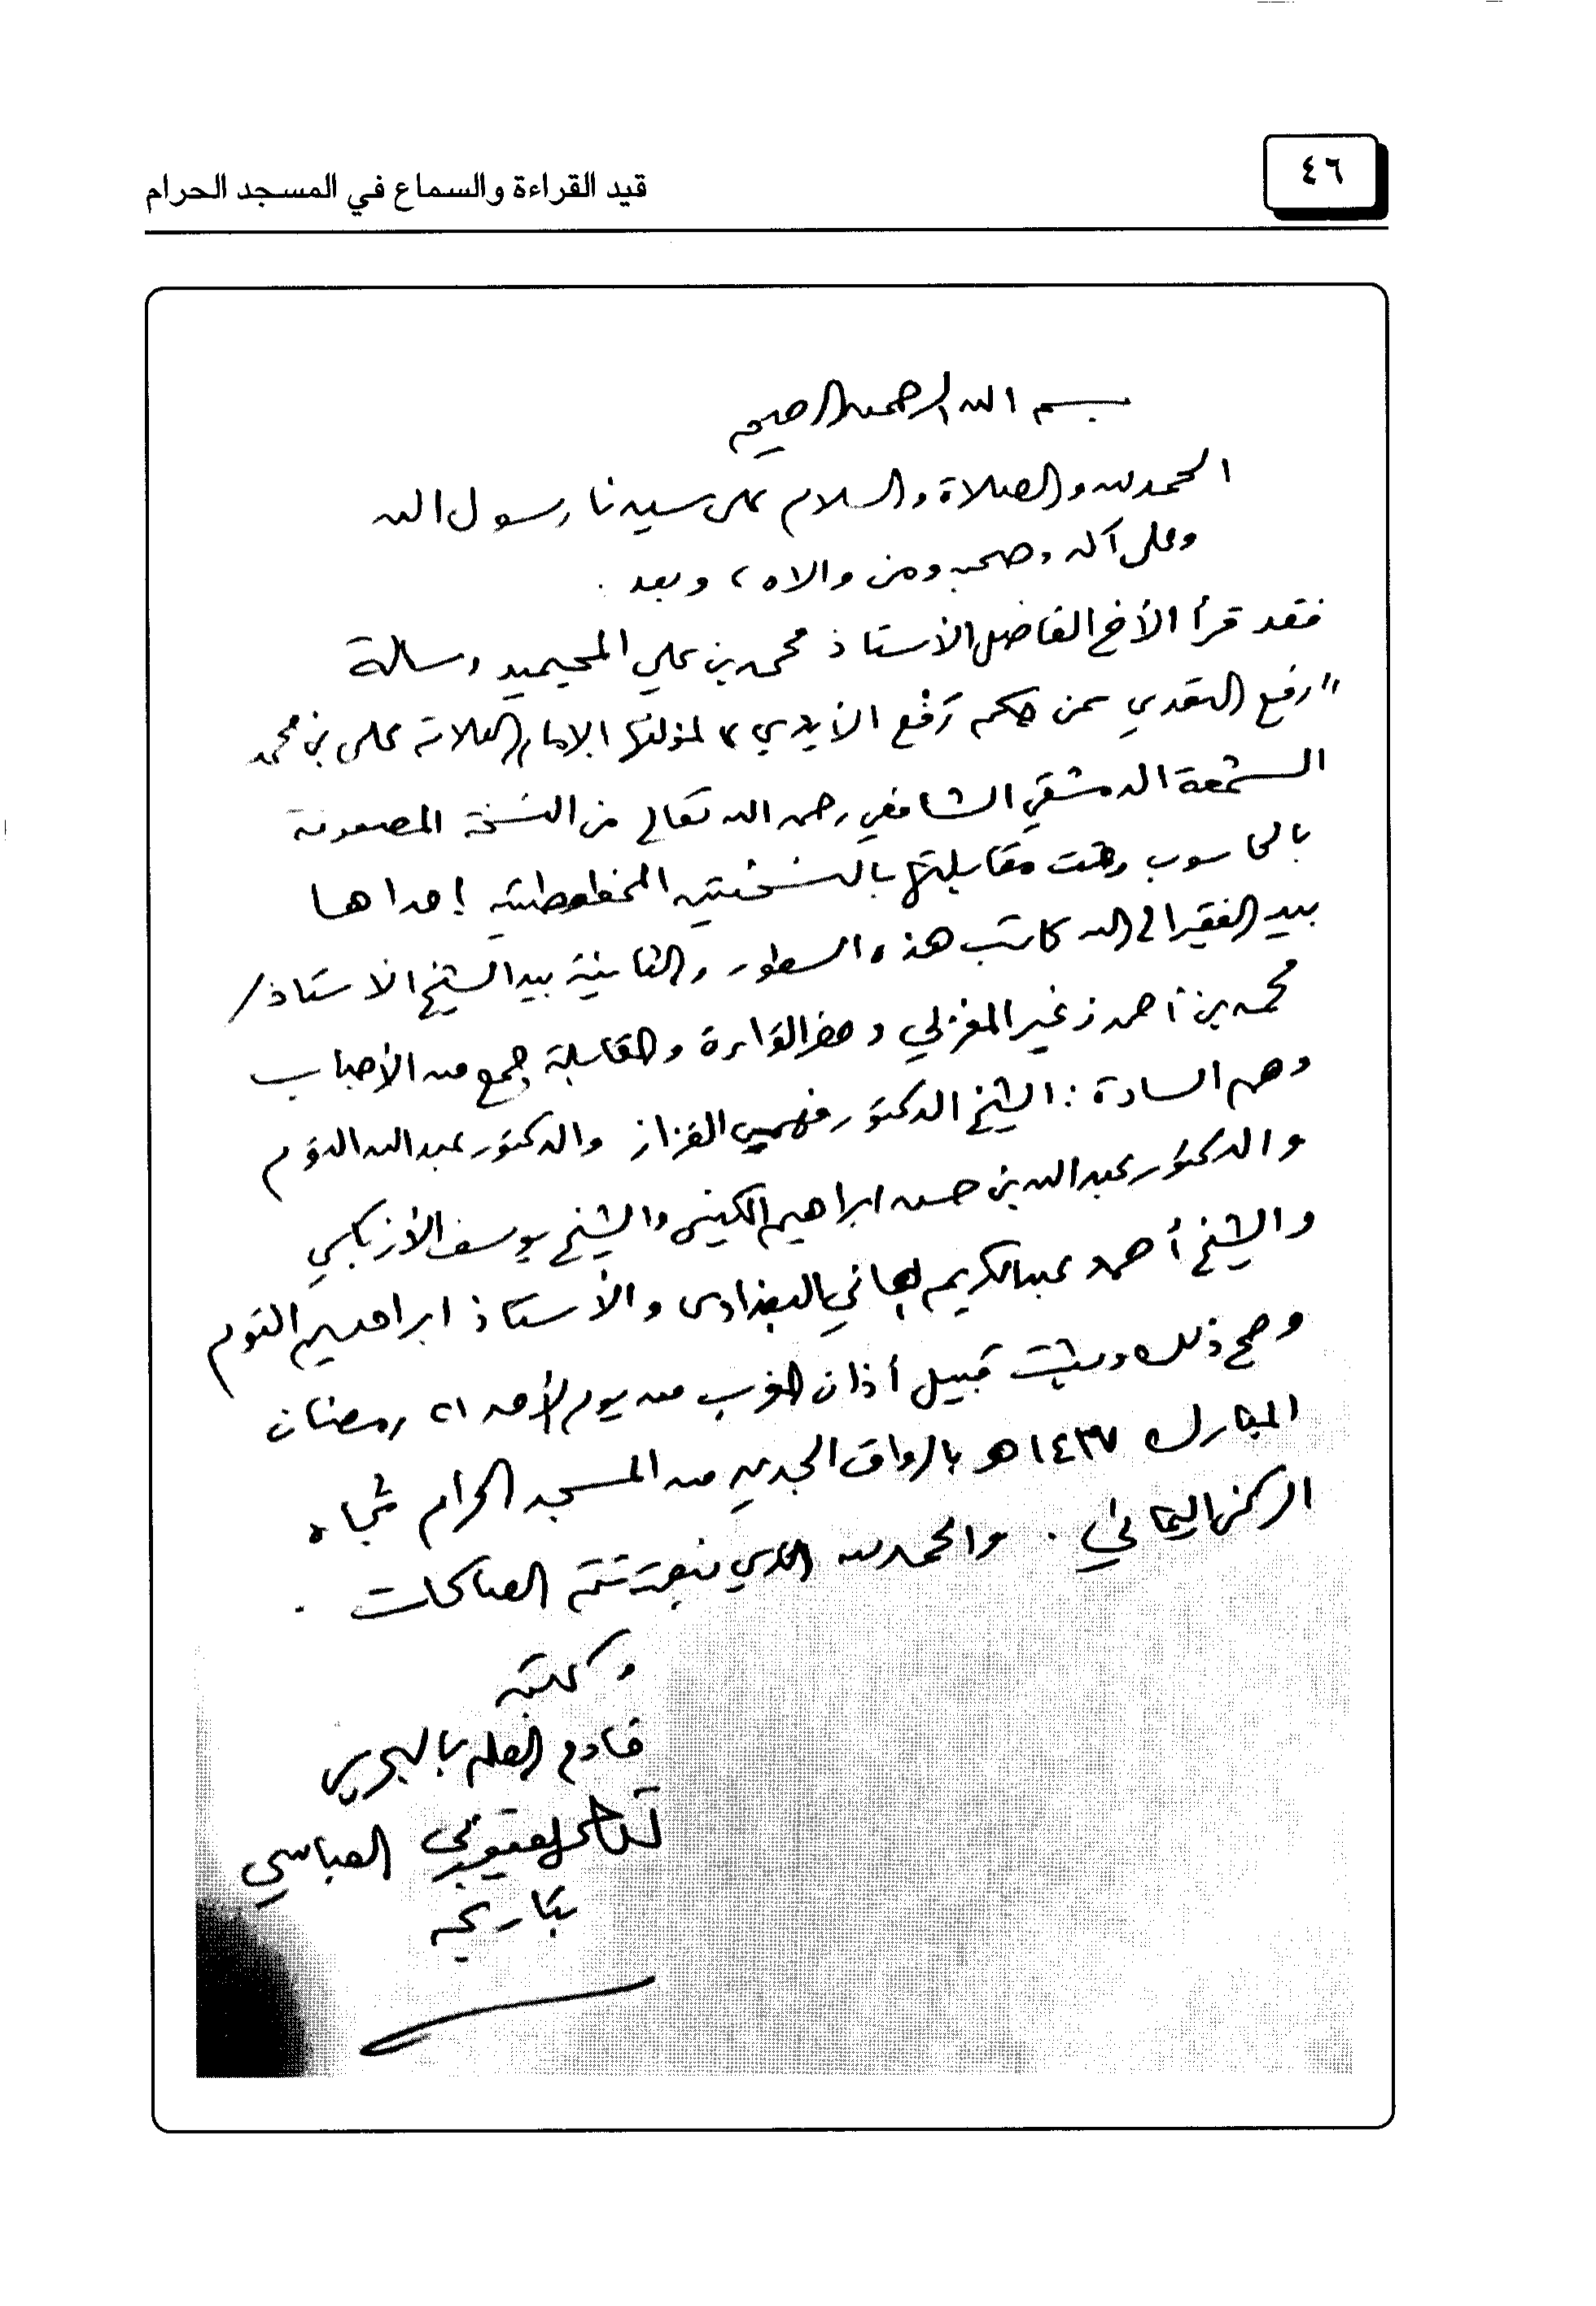 ٤٦
قيد القراءة والسماع في المسجد الحرام
بسم الله الرحمن الرحيم
الحمد لله والصلاة والسلام على سيدنا رسول الله
وعلى آله وصحبه ومن والاه، وبعد.
فقد قرأ الأخ الفاضل الأستاذ محمد بن علي المحيميد رسالة
"رفع التعدي عن حكم رَفْع الأيدي" لمؤلفها الإمام العلامة علي بن محمد
الشمعة الدمشقي الشافعي رحمه الله تعالى من النسخة المصفوفة
بالحاسوب وتمت مقابلتها بالنسختين المخطوطتين إحداها
بيد الفقير الى الله كاتب هذه السطور والثانية بيد الشيخ الاستاذ/
محمد بن أحمد زغير المغزلي وحضر القراءة والمقابلة جمع من الأحباب
وهم السادة: الشيخ الدكتور فهمي القزاز والدكتور عبد الله التوم
والدكتور عبد الله بن حسن ابراهيم والشيخ يوسف الأزبكي
والشيخ أحمد عبد الكريم العاني البغدادي والأستاذ ابراهيم التوم
وصح ذلك وثبت قبيل أذان المغرب من يوم الأحد ٢١ رمضان
المبارك ١٤٣٧هـ بالرواق الجديد من المسجد الحرام تجاه
الركن اليماني. والحمد لله الذي بنعمته تتم الصالحات.
وكتبه
خادم العلم بالبحرين
نظام يعقوبي العباسي
بتاريخه